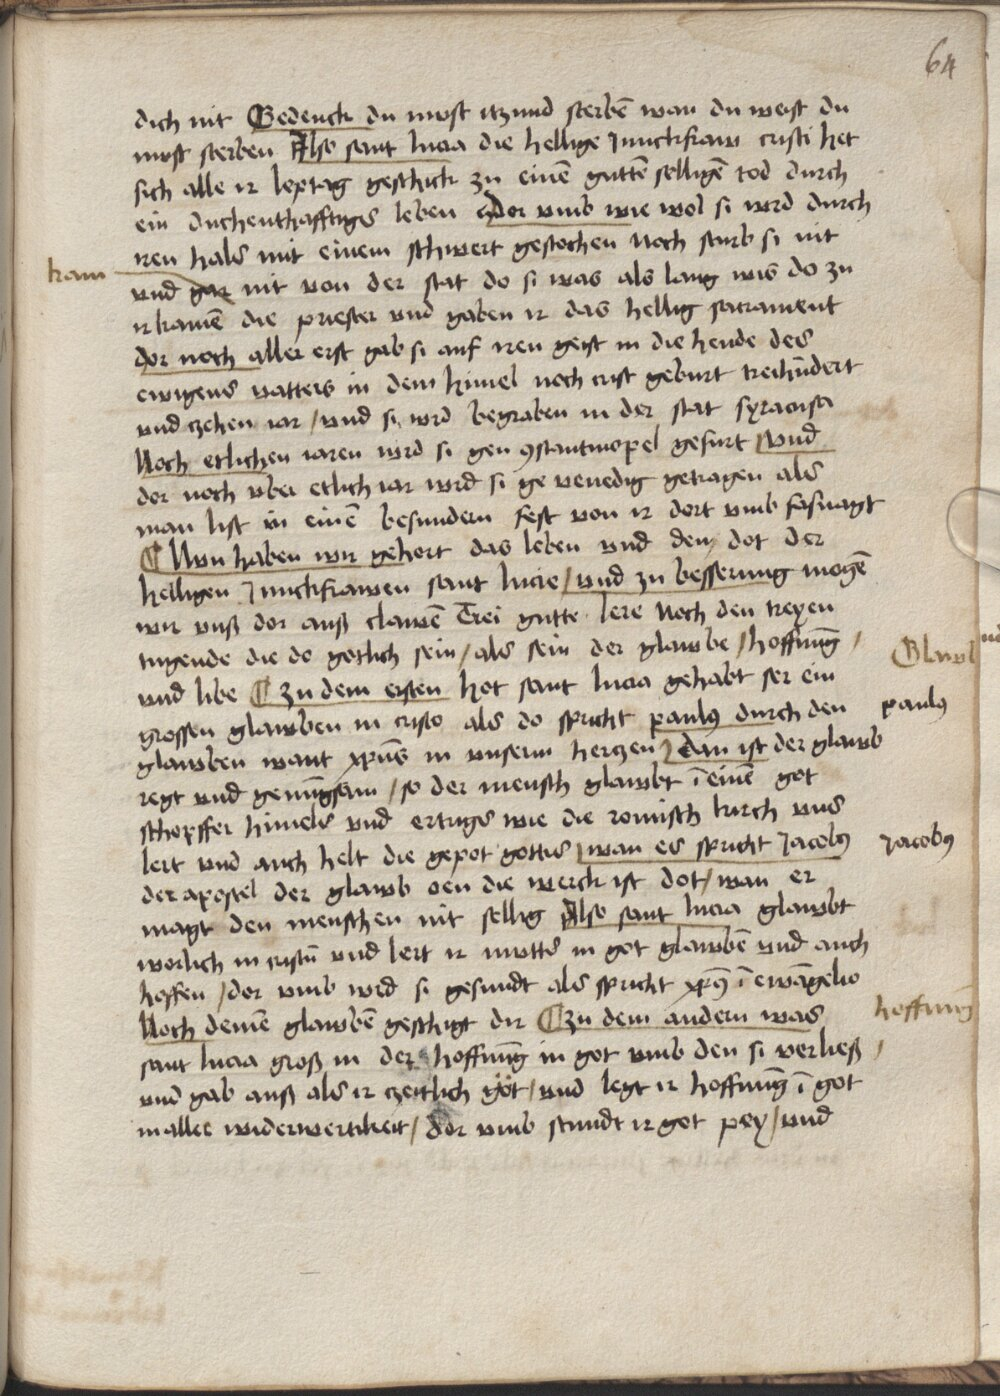 64
dich nit Gedenck du must itzund sterbē wan du weist du
must sterben Also sant lucia die hellige Junckfraw cristi het
sich alle ir leptag geschickt zu einē guttē selligē tod durch
ein duchenthafftigs leben Dor vmb wie wol si wrd durch
iren hals mit einem schwert gestochen Noch sturb si nit
kam
vnd gar nit von der stat do si was als lang wis do zu
ir kamē die priester vnd gaben ir das hellig sacrament
dor noch aller erst gab si auf iren geist in die hende des
ewigens vatters in dem himel noch crist geburt treihūdert
vnd zehen iar / vnd si wrd begraben in der stat syracusa
Noch etlichen iaren wrd si gen 9stantinopel gefurt vnd
dor noch vber etlich iar wrd si ge venedig getragen als
man list in einē besundern fest von ir dort vmb fasnagt
¶ Nvn haben wir gehort das leben vnd den dot der
heiligen Junckfrawen sant lucie / vnd zu besserung mogē
wir vnß dor auß clawē Trei gutte lere Noch den treyen
tugende die do gotlich sein / als sein der glawbe / hoffnūg /
Glawb
vnd libe ¶ zu dem ersten Hot sant lucia gehabt ser ein
grossen glawben in cristo als do spricht paul9 durch den
paul9
glawben want xpūs in vnserm hertzen / dan ist der glawb
regt vnd genūgsam / so der mensch glawbt ī einē got
schopffer himels vnd ertrigs wie die romisch kirch vns
lert vnd auch helt die gepot gottis / wan es spricht Jacob9
Jacob9
der apostel der glawb oen die werck ist dot / wan er
magt den menschen nit sellig Also sant lucia glawbt
worlich in cristū vnd lert ir mutter in got glawbē vnd auch
hoffen / dor vmb wrd si gesundt als spricht xp9 ī ewāgelio
Noch deinē glawbē geschigt dir ¶ zu dem andern was
hoffnung
sant lucia groß in der hoffnūg in got vmb den si verließ /
vnd gab auß als ir czeitlich got / vnd legt ir hoffnūg ī got
in aller widerwertikeit / dor vmb stundt ir got pey / vnd